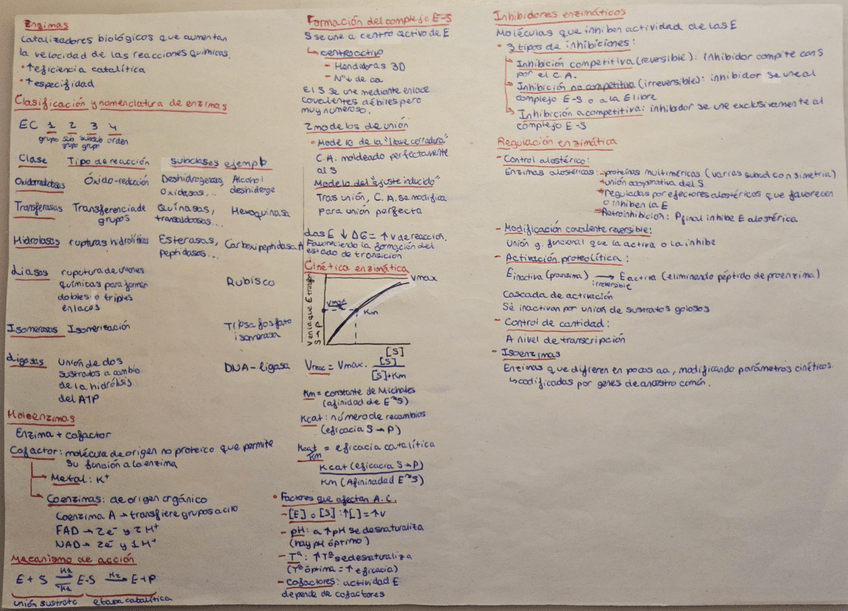 Enzimas
Catalizadores biológicos que aumentan
la velocidad de las reacciones químicas.
· ↑eficiencia catalítica
· ↑especifidad
Clasificación y nomenclatura de enzimas
EC 1 2 3 4
grupo sub grupo subsub grupo orden
Clase Tipo de reacción subclases ejemplo
Oxidorreductasas Óxido-reducción Deshidrogenasas, Oxidasas... Alcohol deshidroge
Trasferasas Transferencia de grupos Quinasas, transaldolasas... Hexoquinasa
Hidrolasas rupturas hidrolíticas Esterasas, peptidasas... Carboxipeptidasa A
Liasas ruptura de uniones
químicas para formar
dobles o triples
enlaces
Rubisco
Isomerasas Isomerización Triosa fosfato
isomerasa
Ligasas Unión de dos
sustratos a cambio
de la hidrólisis
del ATP
DNA-ligasa
Holoenzimas
Enzima + cofactor
Cofactor: molécula de origen no proteico que permite
su función a la enzima
→ Metal: K⁺
→ Coenzimas: de origen orgánico
Coenzima A → transfiere grupos acilo
FAD → 2e⁻ y 2H⁺
NAD → 2e⁻ y 1H⁺
Mecanismo de acción
E + S ⇌ E-S → E+P
unión sustrato etapa catalítica
Formación del complejo E-S
S se une a centro activo de E
↳ centro activo
- Hendiduras 3D
- Nº↓ de aa
El S se une mediante enlace
covalentes débiles pero
muy numeroso.
2 modelos de unión
· Modelo de la "llave cerradura"
C.A. moldeado perfectamente
al S
Modelo del "ajuste inducido"
Tras unión, C.A. se modifica
para unión perfecta
Las E ↓ ΔG = ↑v de reacción.
Favoreciendo la formación del
estado de transición
Cinética enzimática
V en la que E transf
S→P
Vmax
Vmax
Km
[S]
Vmax = Vmax · [S]
[S]+Km
Km = constante de Michales
(afinidad de E~S)
Kcat: número de recambios
(eficacia S→P)
Kcat/Km = eficacia catalítica
Kcat (eficacia S→P)
Km (Afininadad E~S)
· Factores que afectan A.C.
- [E] o [S]: ↑[ ] = ↑v
- pH: a ↑pH se desnaturaliza
(hay pH óptimo)
- Tª: ↑Tª se desnaturaliza
(Tª óptima = ↑eficacia)
- Cofactores: actividad E
depende de cofactores
Inhibidores enzimáticos
Moléculas que inhiben actividad de las E
· 3 tipos de inhibiciones:
→ Inhibición competitiva (reversible): inhibidor compite con S
por el C.A.
→ Inhibición no competitiva (irreversible): inhibidor se une al
complejo E-S o a la E libre
→ Inhibición acompetitiva: inhibidor se une exclusivamente al
complejo E-S
Regulación enzimática
- Control alostérico:
Enzimas alostéricos: - proteínas multiméricas (varias subud con simetría)
- unión cooperativa del S
→ Reguladas por efectores alostéricos que favorecen
o inhiben la E
→ Retroinhibición: P final inhibe E alostérica
- Modificación covalente reversible:
Unión g. funcional que la activa o la inhibe
- Activación proteolítica:
E inactiva (proenzima) → E activa (eliminando péptido de proenzima)
irreversible
Cascada de activación
Se inactivan por unión de sustratos golosos
- Control de cantidad:
A nivel de transcripción
- Isoenzimas
Enzimas que difieren en pocos aa, modificando parámetros cinéticos.
↳ codificadas por genes de ancestro común.